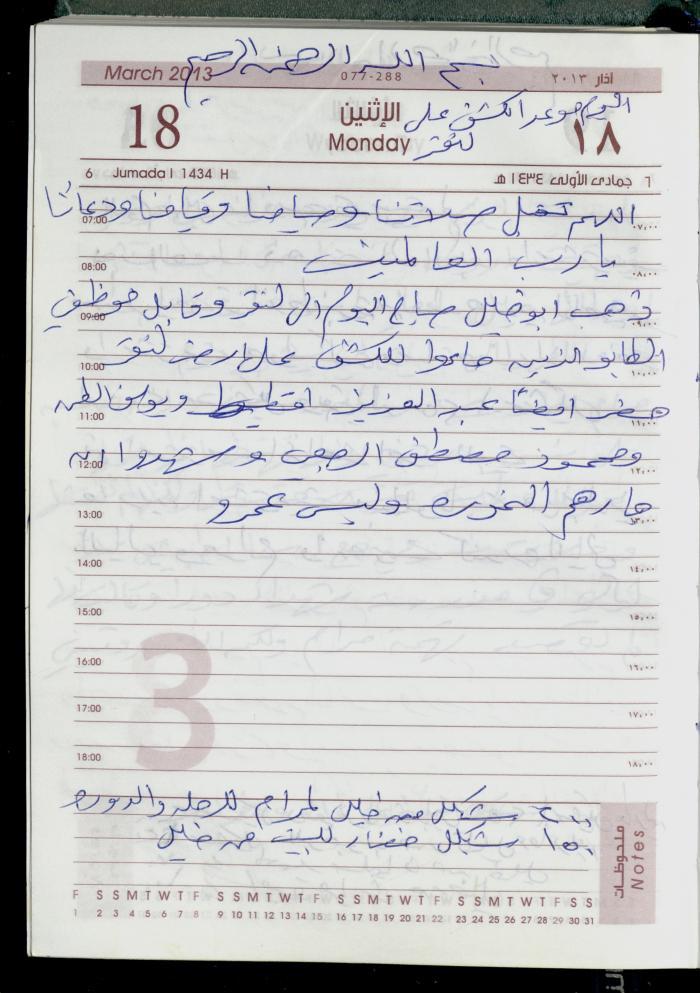 بسم الله الرحمن الرحيم
March 2013 077-288 آذار ٢٠١٣
اليوم موعد الكشف على
18 الإثنين ١٨
Monday لنقر
6 Jumada I 1434 H ٦ جمادى الأولى ١٤٣٤ هـ
اللهم تقبل صلاتنا وصيامنا وقيامنا ودعائنا
07:00 ٠٧,٠٠
يا رب العالمين
08:00 ٠٨,٠٠
ذهب ابو خليل صباح اليوم الى لنقر وقابل موظفي
09:00 ٠٩,٠٠
الطابو الذين جاءوا للكشف على ارض لنقر
10:00 ١٠,٠٠
حضر ايضاً عبد العزيز ويوسف
11:00 ١١,٠٠
ومحمود مصطفى وشهدوا
12:00 ١٢,٠٠
جارهم وليس عمرو
13:00 ١٣,٠٠
14:00 ١٤,٠٠
15:00 ١٥,٠٠
16:00 ١٦,٠٠
17:00 ١٧,٠٠
18:00 ١٨,٠٠
3
٢٠٠ شيكل من خليل لمرام للرحلة والدورة
١٥٠ شيكل خضار للبيت من خليل
ملاحظات
Notes
F S S M T W T F S S M T W T F S S M T W T F S S M T W T F S S
1 2 3 4 5 6 7 8 9 10 11 12 13 14 15 16 17 18 19 20 21 22 23 24 25 26 27 28 29 30 31